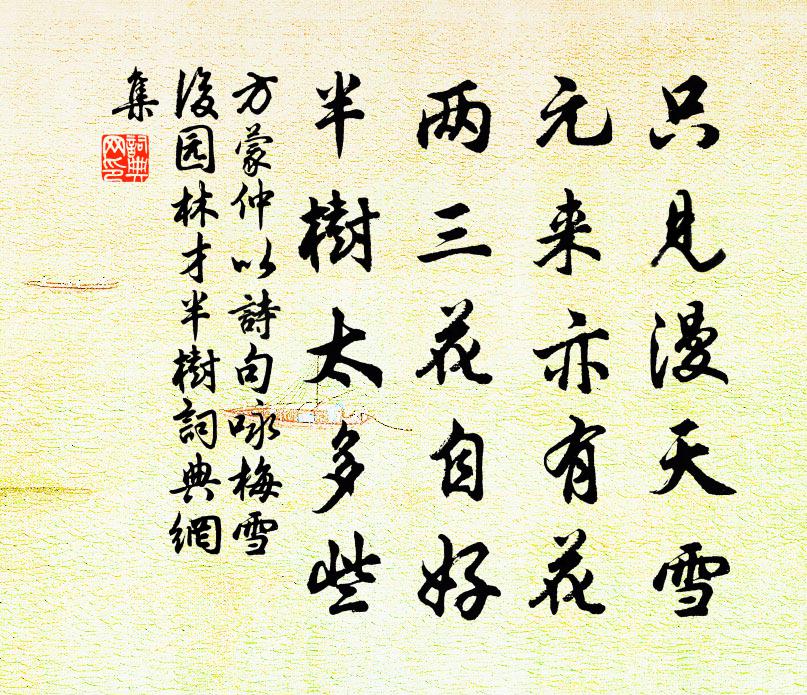 只见漫天雪
元来亦有花
两三花自好
半樹太多些
方蒙仲以詩句咏梅雪
後园林才半樹詞典網
集
詞典
网印